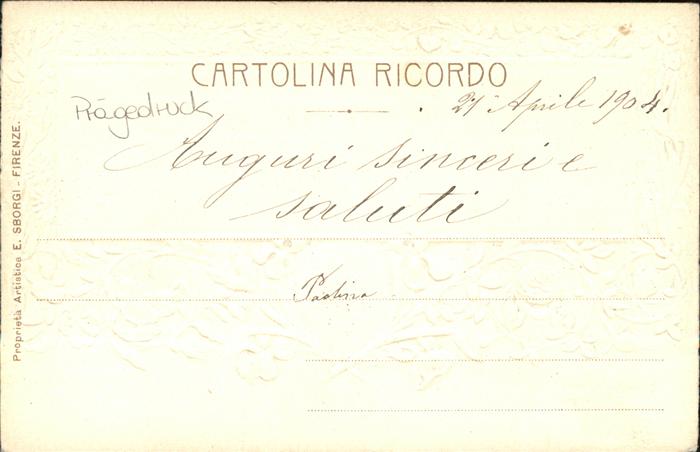 CARTOLINA RICORDO
Prägedruck
21 Aprile 1904.
Auguri sinceri e
saluti
Paolina
Proprietà Artistica E. SBORGI - FIRENZE.